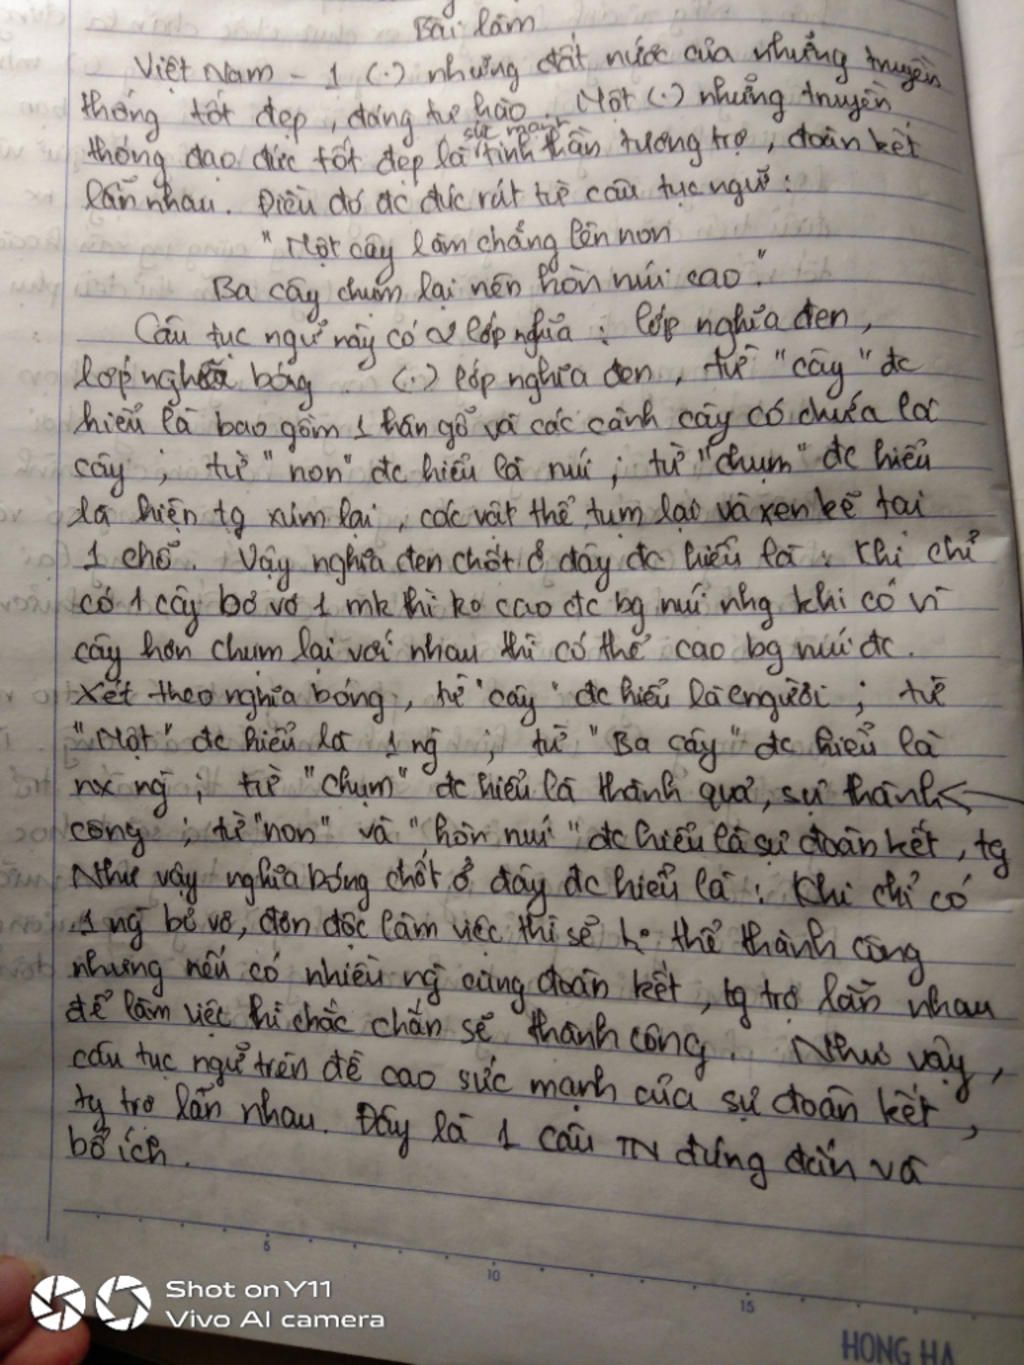 Bài làm
Việt Nam - 1 (.) những đất nước của những truyền
thống tốt đẹp, đáng tự hào. Một (.) những truyền
sức mạnh
thống đạo đức tốt đẹp là tinh thần tương trợ, đoàn kết
lẫn nhau. Điều đó đc đúc rút từ câu tục ngữ:
"Một cây làm chẳng lên non
Ba cây chụm lại nên hòn núi cao".
Câu tục ngữ này có 2 lớp nghĩa: lớp nghĩa đen,
lớp nghĩa bóng. (.) lớp nghĩa đen, từ "cây" đc
hiểu là bao gồm 1 thân gỗ và các cành cây có chứa lá
cây; từ "non" đc hiểu là núi; từ "chụm" đc hiểu
là hiện tg xúm lại, các vật thể tụm lại và xen kẽ tại
1 chỗ. Vậy nghĩa đen chốt ở đây đc hiểu là: Khi chỉ
có 1 cây bơ vơ 1 mk thì ko cao đc bg núi nhg khi có vì
cây hơn chụm lại với nhau thì có thể cao bg núi đc.
Xét theo nghĩa bóng, từ "cây" đc hiểu là người; từ
"Một" đc hiểu là 1 ng; từ "Ba cây" đc hiểu là
nx ng; từ "chụm" đc hiểu là thành quả, sự thành
công; từ "non" và "hòn núi" đc hiểu là sự đoàn kết, tg
Như vậy nghĩa bóng chốt ở đây đc hiểu là: Khi chỉ có
1 ng bơ vơ, đơn độc làm việc thì sẽ ko thể thành công
nhưng nếu có nhiều ng cùng đoàn kết, tg trợ lẫn nhau
để làm việc thì chắc chắn sẽ thành công. Như vậy,
câu tục ngữ trên đề cao sức mạnh của sự đoàn kết,
tg trợ lẫn nhau. Đây là 1 câu TN đúng đắn và
bổ ích.
5
10
15
Shot on Y11
Vivo AI camera
HONG HA